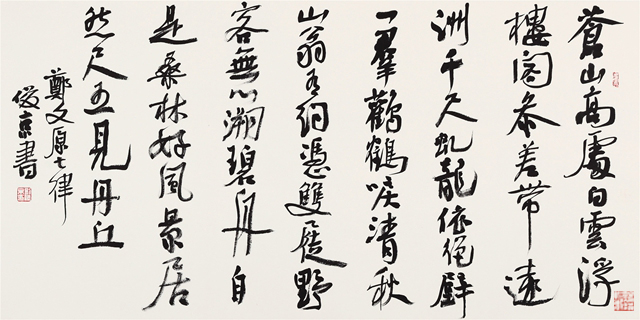 蒼山高處白雲浮
樓閣參差帶遠
洲千尺虬龍依絕壁
一羣鸛鶴唳清秋
山翁有約憑雙屐野
客無心溯碧舟自
是桑林好風景居
然尺五見丹丘
鄭文原七律
俊京書